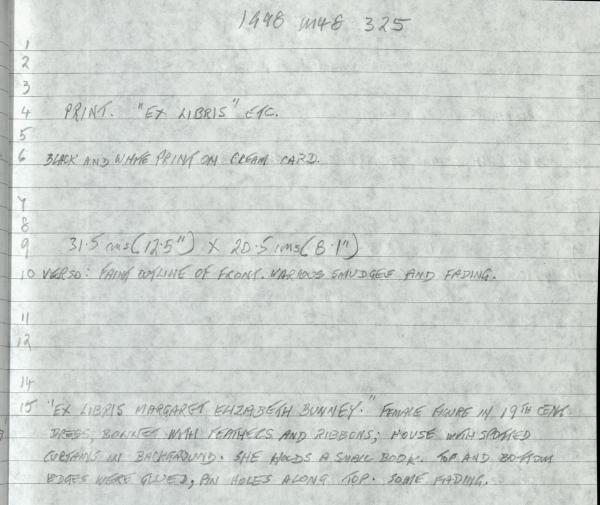 1998 M48 325
1
2
3
4 PRINT. "EX LIBRIS" ETC.
5
6 BLACK AND WHITE PRINT ON CREAM CARD.
7
8
9 31.5 cms (12.5") X 20.5 cms (8.1")
10 VERSO: FAINT OUTLINE OF FRONT. VARIOUS SMUDGES AND FADING.
11
12
14
15 "EX LIBRIS MARGARET ELIZABETH BUNNEY." FEMALE FIGURE IN 19TH CENT
DRESS, BONNET WITH FEATHERS AND RIBBONS; HOUSE WITH SPOTTED
CURTAINS IN BACKGROUND. SHE HOLDS A SMALL BOOK. TOP AND BOTTOM
EDGES WERE GLUED, PIN HOLES ALONG TOP. SOME FADING.